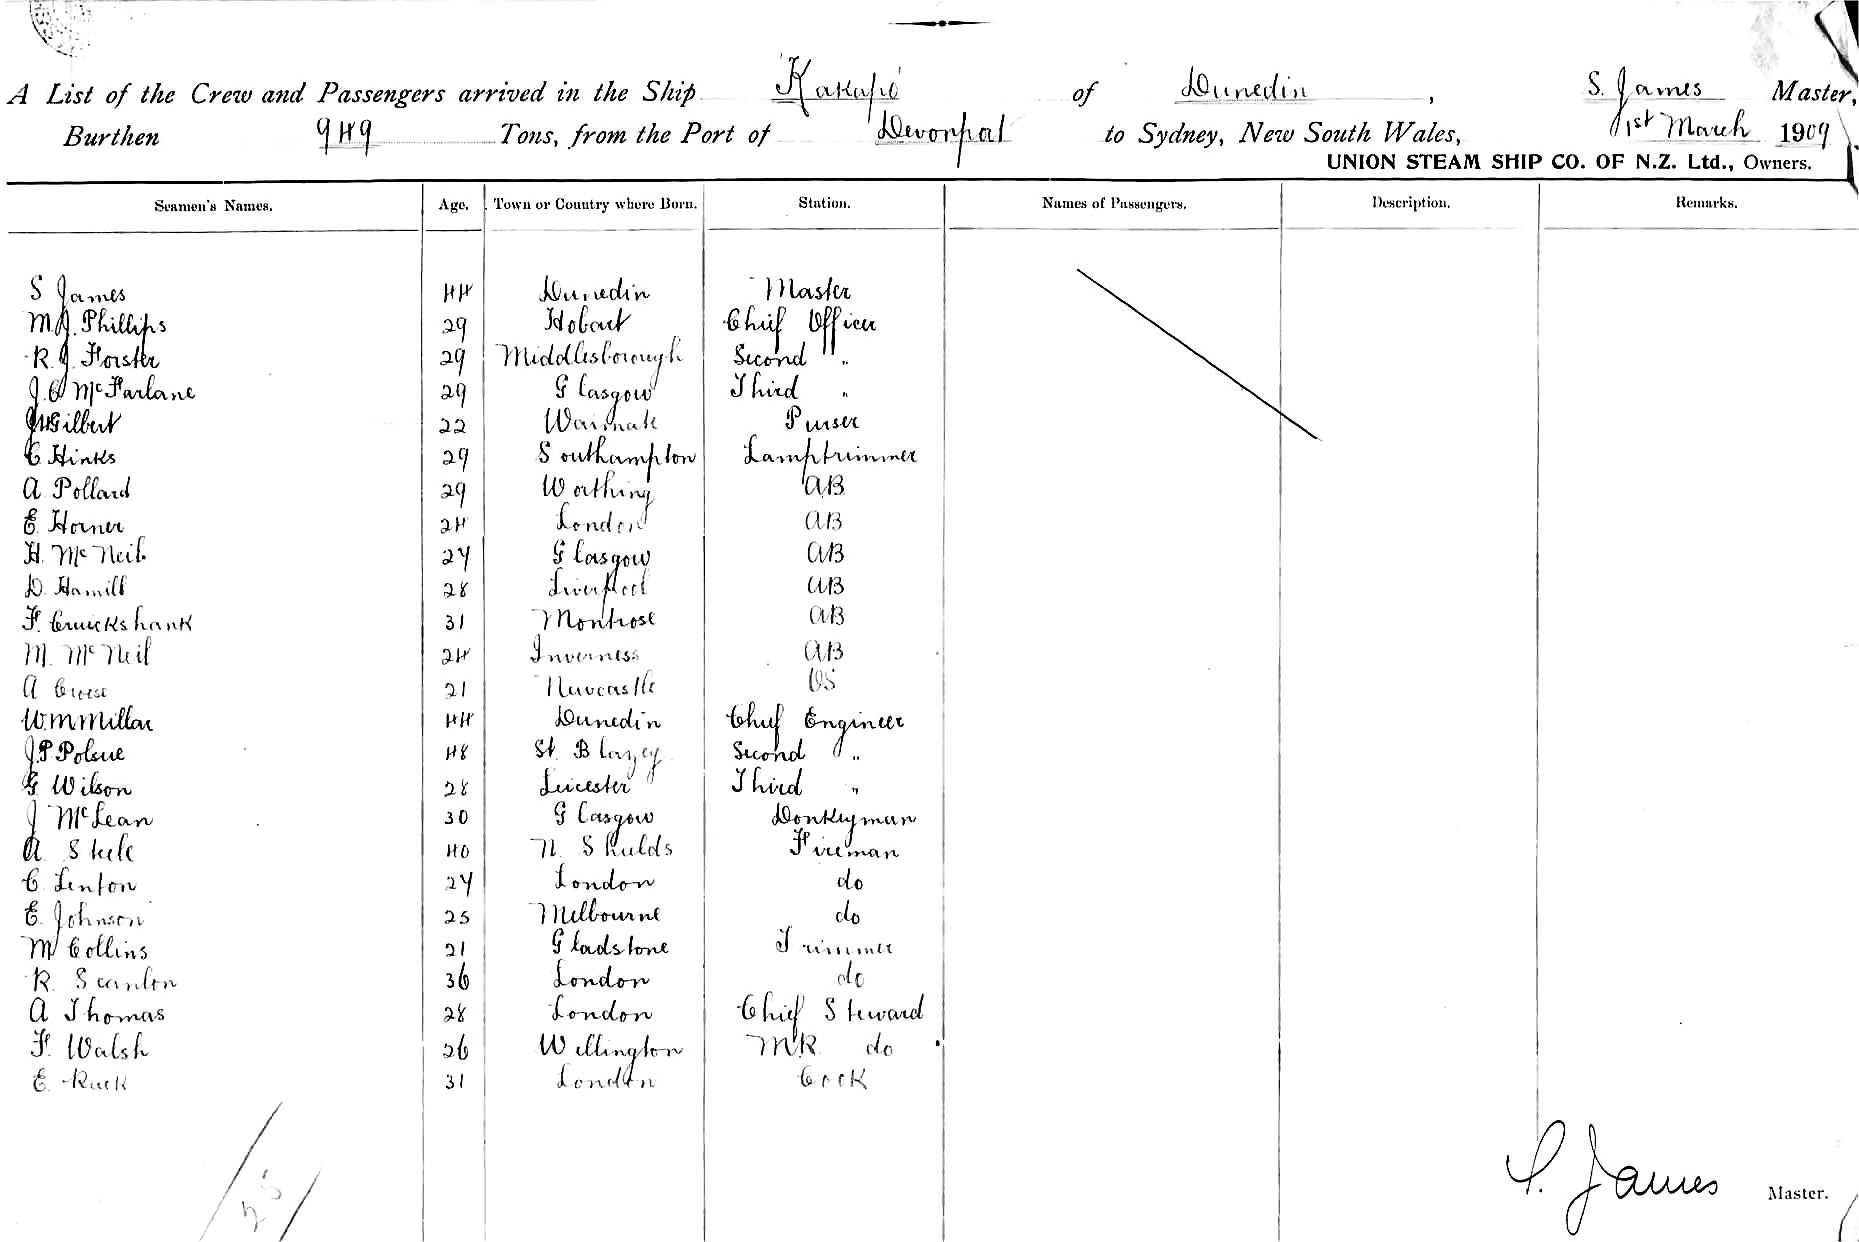 A List of the Crew and Passengers arrived in the Ship Kakapo of Dunedin, S. James Master,
Burthen 949 Tons, from the Port of Devonport to Sydney, New South Wales, 1st March 1909
UNION STEAM SHIP CO. OF N.Z. Ltd., Owners.
Seamen's Names. Age. Town or Country where Born. Station. Names of Passengers. Description. Remarks.
S James 44 Dunedin Master
M.J. Phillips 29 Hobart Chief Officer
R. J. Forster 29 Middlesborough Second "
J. McFarlane 29 Glasgow Third "
Gilbert 22 Waimate Purser
C Hinks 29 Southampton Lamptrimmer
A Pollard 29 Worthing AB
E Horner 24 London AB
H. McNeil 27 Glasgow AB
D. Hamill 28 Liverpool AB
F. Cruickshank 31 Montrose AB
M. McNeil 24 Inverness AB
A 21 Newcastle OS
W.M Millar 44 Dunedin Chief Engineer
J.P. Polsue 48 St. Blazey Second "
G Wilson 28 Leicester Third "
J McLean 30 Glasgow Donkeyman
A Steele 40 N. Shields Fireman
C. Lenton 27 London do
E. Johnson 25 Melbourne do
M Collins 21 Gladstone Trimmer
R. Scanlon 36 London do
A Thomas 28 London Chief Steward
F. Walsh 26 Wellington M.R. do
E. Ruck 31 London Cook
25
S. James Master.